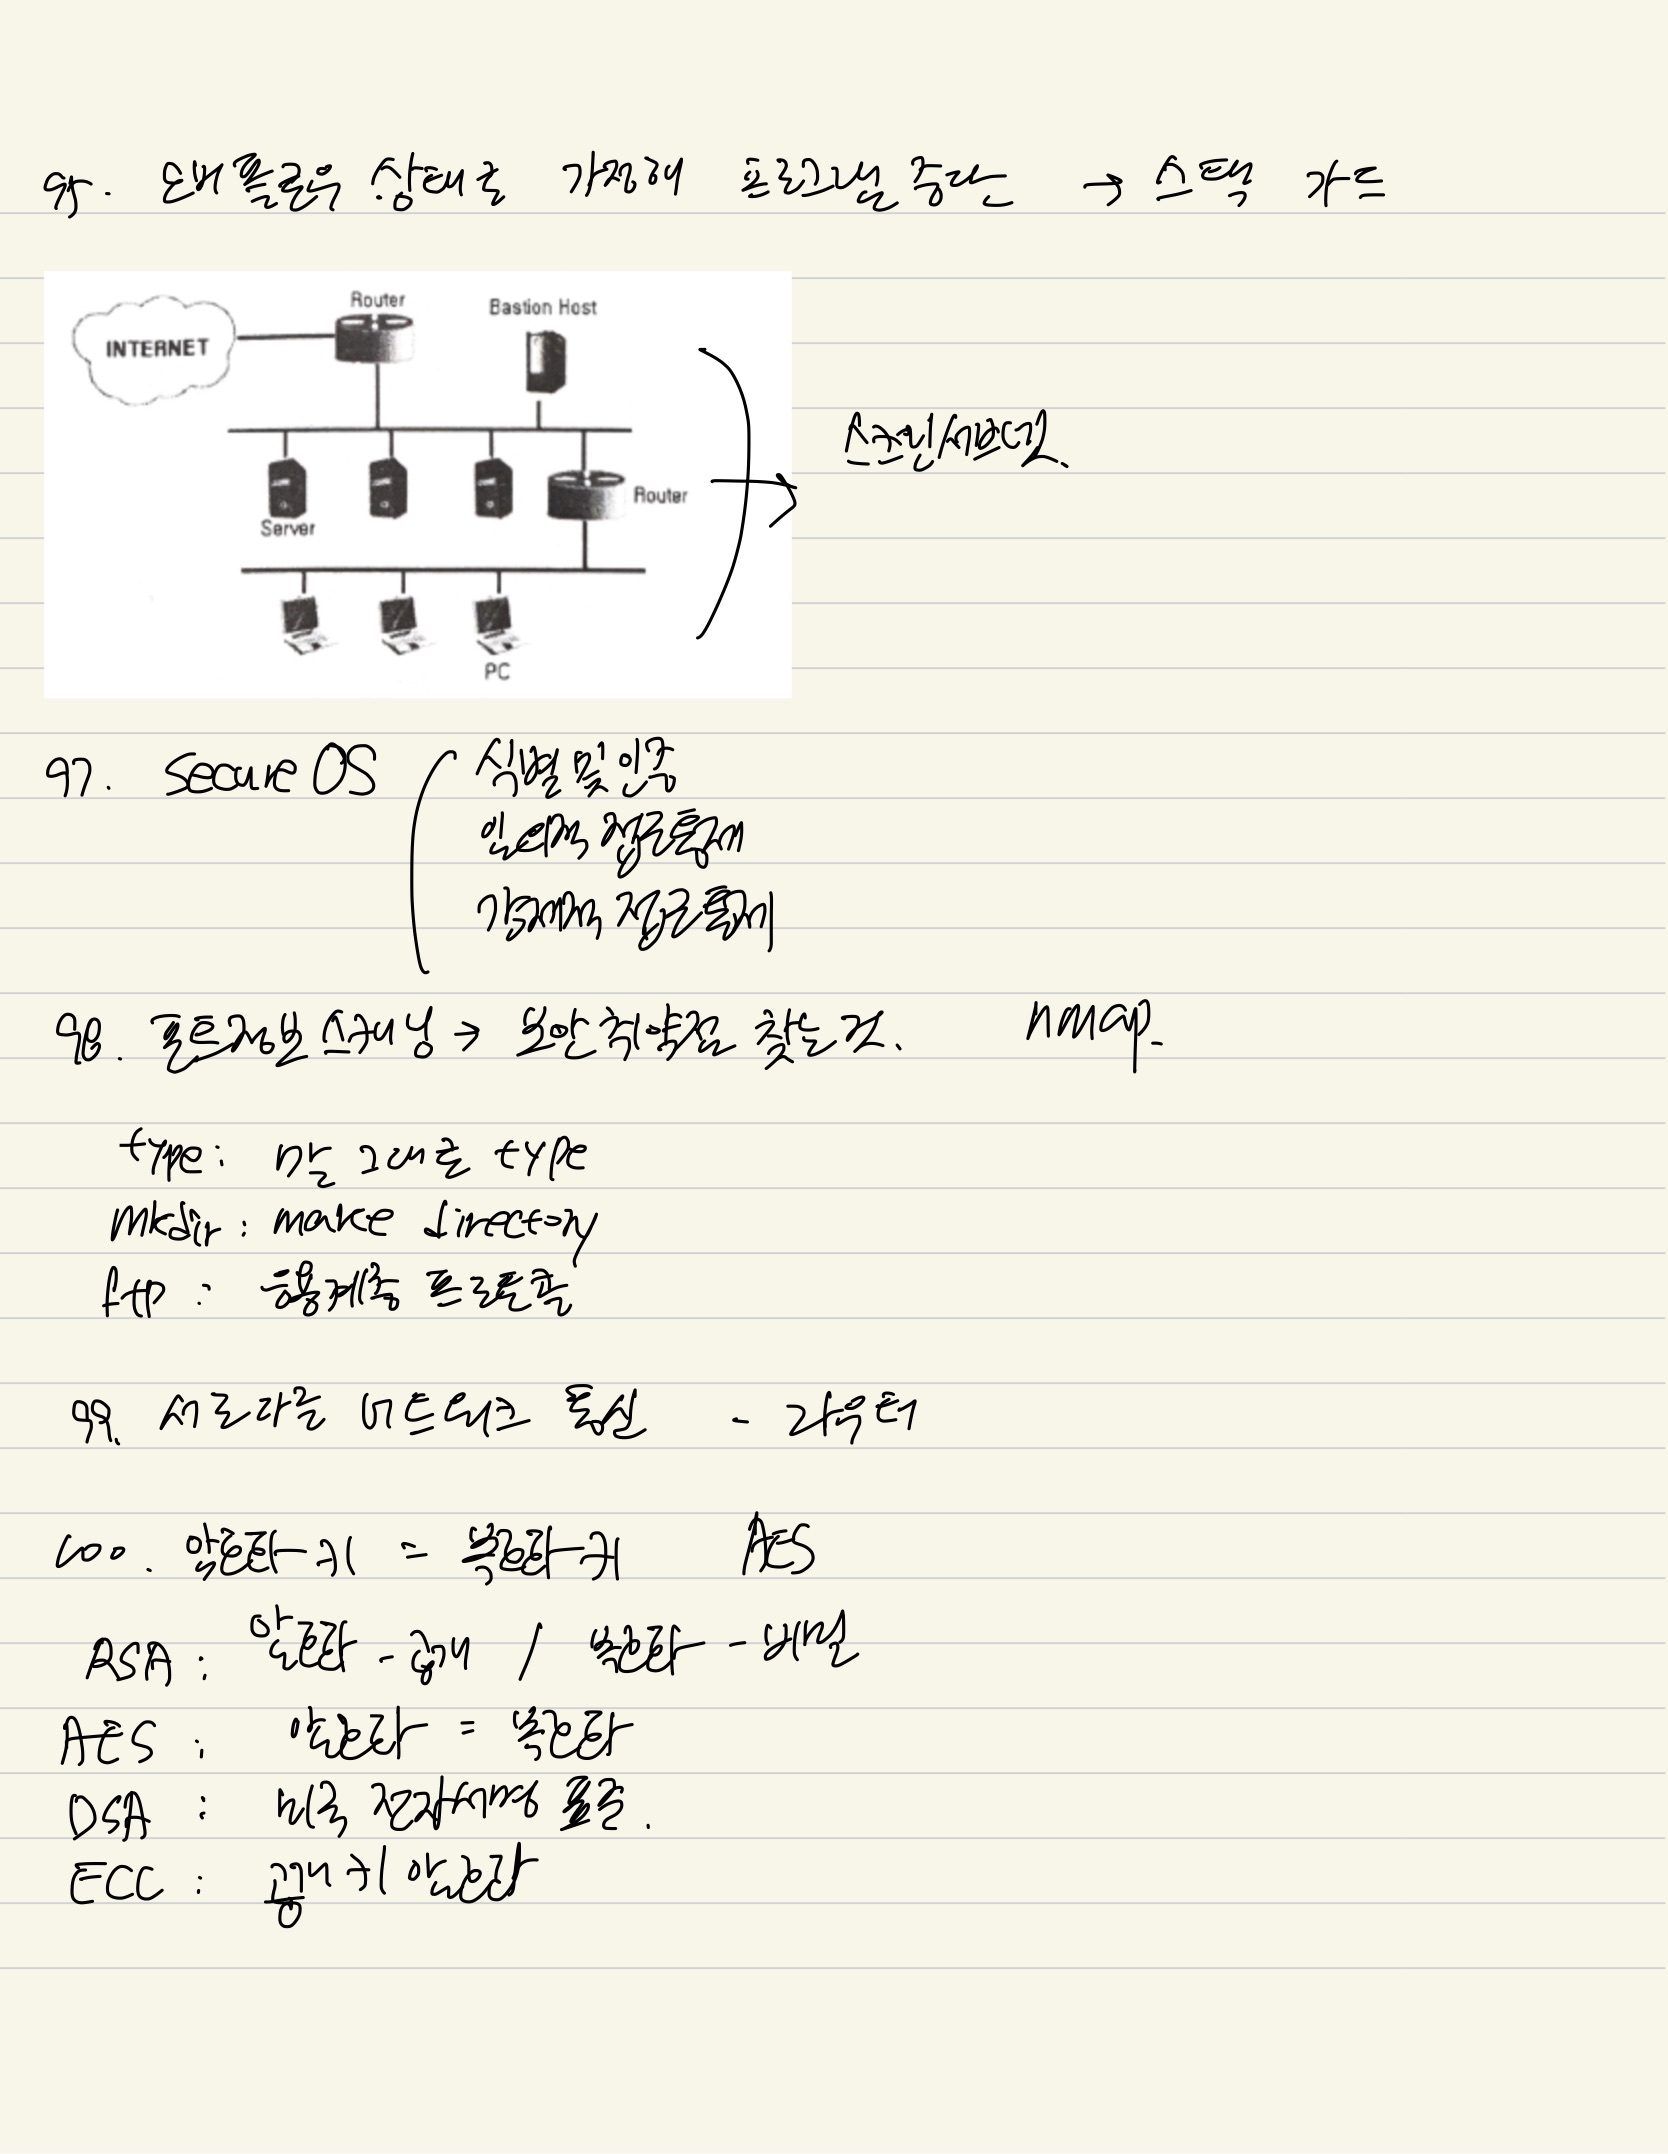 95. 오버플로우 상태로 가정해 프로그램 중단 → 스택 가드
Router
Bastion Host
INTERNET
스크린 서브넷.
Router
Server
PC
97. Secure OS 식별 및 인증
임의적 접근통제
강제적 접근통제
98. 포트정보 스캐닝 → 보안 취약점 찾는것. nmap.
type: 말 그대로 type
mkdir: make directory
ftp : 응용계층 프로토콜
99. 서로다른 네트워크 통신 - 라우터
100. 암호화키 = 복호화키 AES
RSA : 암호화 - 공개 / 복호화 - 비밀
AES : 암호화 = 복호화
DSA : 미국 전자서명 표준.
ECC : 공개키 암호화